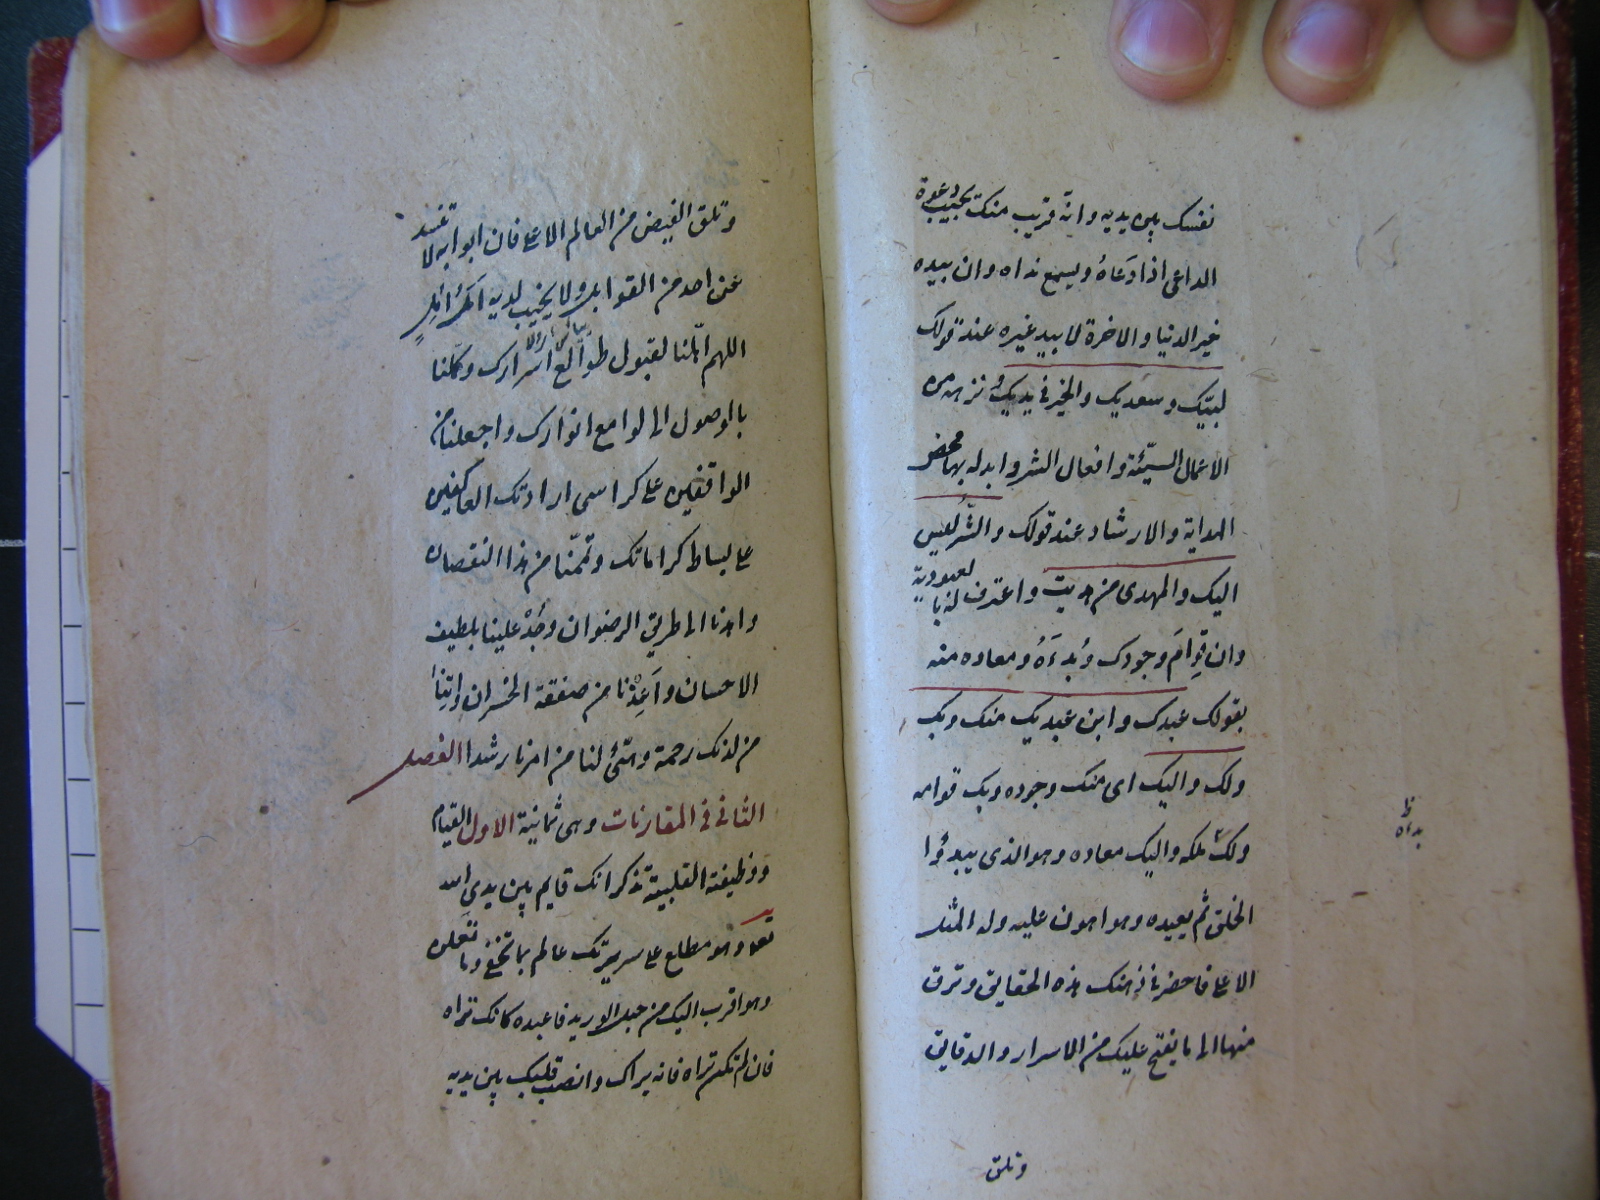 نفسك بين يديه وانه قريب منك يجيب دعوة
الداعى اذا دَعَاهُ ويسمع نداه وان بيده
خير الدنيا والاخرة لا بيد غيره عند قولك
لبيّك وسعديك والخير فى يديك ونزهه من
الاعمال السيّئة وافعال الشر وابدله بها محض
الهداية والارشاد عند قولك والشّر ليس
اليك والمهدى من هديت واعترف له بالعبودية
وان قِوامَ وجودك وبدءَهُ ومعاده منه
بقولك عبدك وابن عبديك منك وبك
ولك واليك اى منك وجوده وبك قوامه
ولك ملكه واليك معاده وهو الذى يبدؤا
الخلق ثم يعيده وهو اهون عليه وله المثل
الاعلى فاحضر فى ذهنك هذه الحقايق وترق
منها الى ما يفتح عليك من الاسرار والدقايق
وتلق
ظ
بداه
وتلق الفيض من العالم الاعلى فان ابوابه لا تفسد
عن احد من القوابل ولا يخيب لديه امل آمل
اللهم اهّلنا لقبول طوالع اسرارك وكمّلنا
بالوصول الى لوامع انوارك واجعلنا من
الواقفين على كراسى ارادتك العاكفين
على بساط كراماتك وتمّمنا من هذا النقصان
واهدنا الى طريق الرضوان وجُدْ علينا بلطيف
الاحسان واَعِذْنا من صفقة الخسران واتِنا
من لدنك رحمة وهيّئ لنا من امرنا رشدا الفصل
الثانى فى المقارنات وهى ثمانية الاول القيام
ووظيفته القلبية تذكر انك قايم بين يدى الله
تعالى وهو مطلع على سريرتك عالم بما تخفى وما تعلن
وهو اقرب اليك من حبل الوريد فاعبده كانك تراه
فان لم تكن تراه فانه يراك وانصب قلبك بين يديه